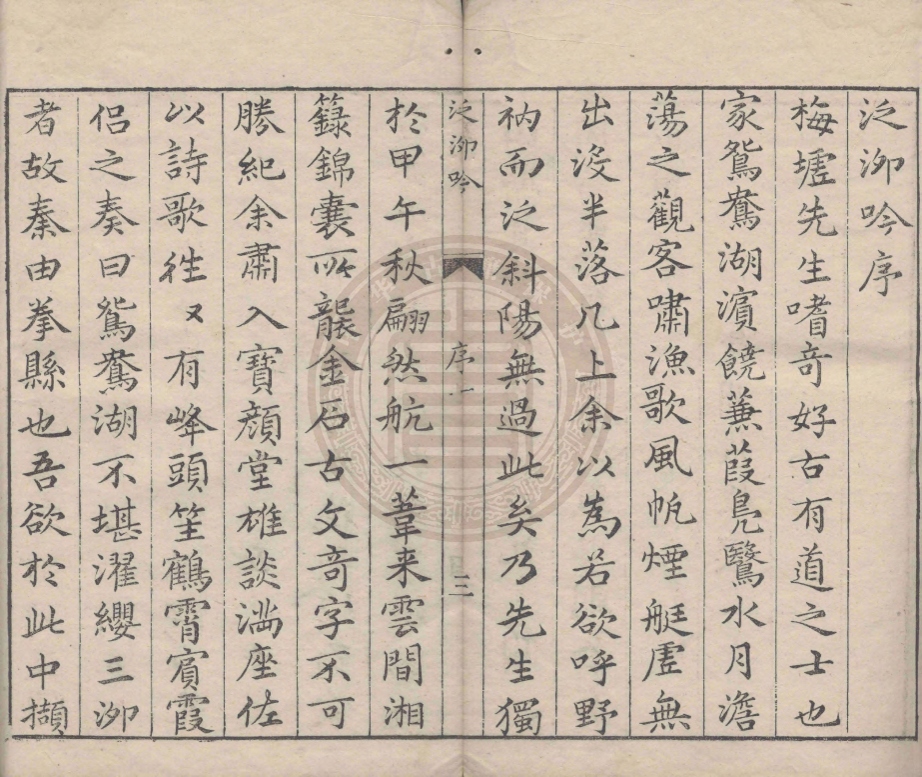 泛泖吟序
梅墟先生嗜竒好古有道之士也
家鴛鴦湖濵饒蒹葭鳧鷖水月澹
蕩之觀客嘯漁歌風帆煙艇虗無
出沒半落几上余以爲若欲呼野
衲而泛斜陽無過此矣乃先生獨
泛泖吟 序一 三
於甲午秋翩然航一葦来雲間湘
籙錦囊所襲金石古文竒字不可
勝紀余肅入寶顔堂雄談満座佐
以詩歌徃又有峰頭笙鶴霄賓霞
侣之奏曰鴛鴦湖不堪濯纓三泖
者故秦由拳縣也吾欲於此中擷